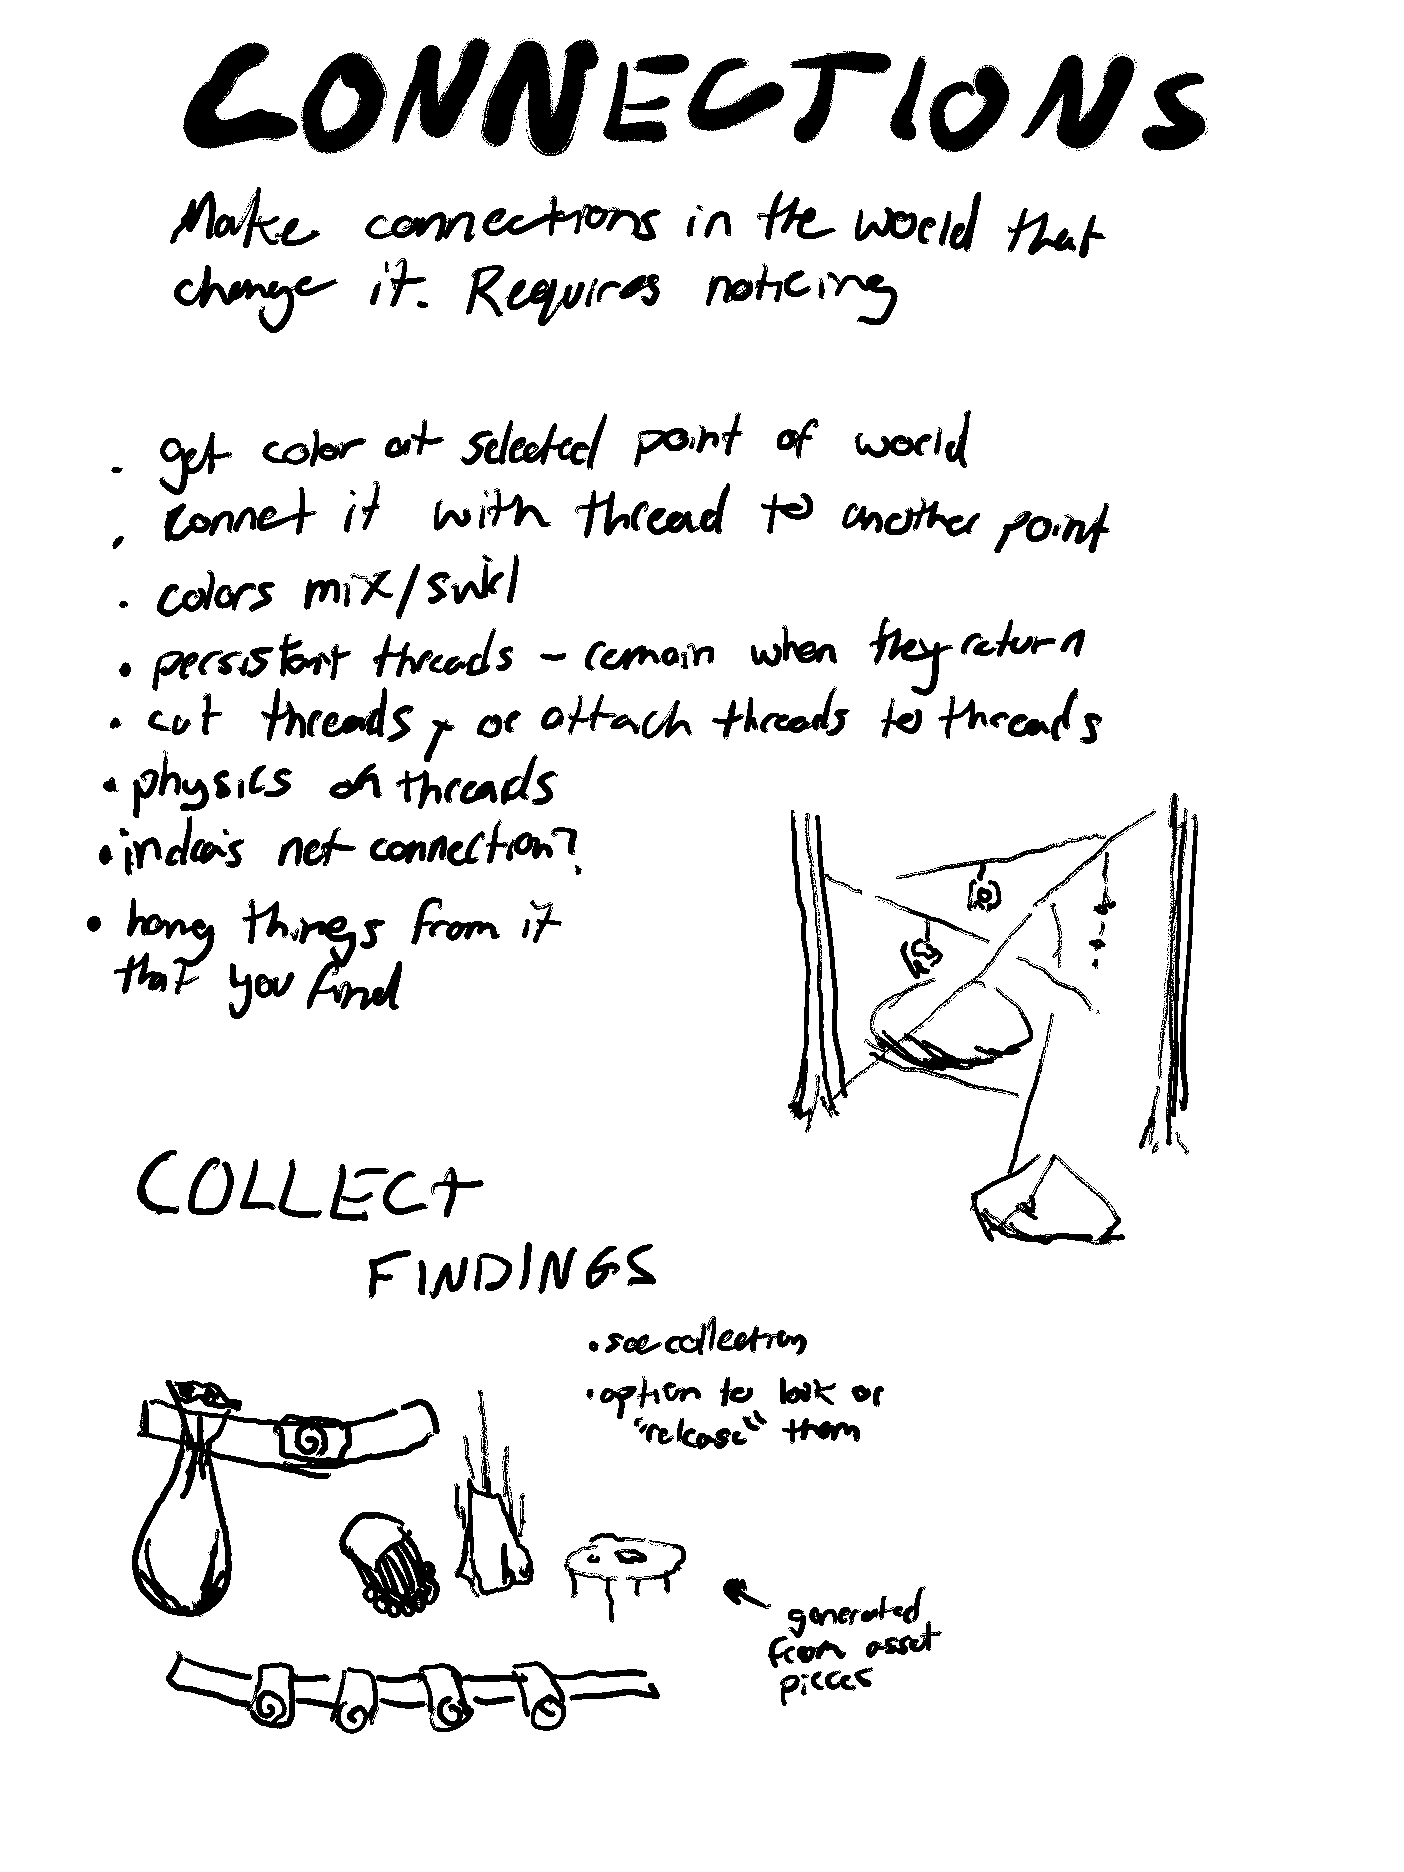 CONNECTIONS
Make connections in the world that
change it. Requires noticing
• get color at selected point of world
• connet it with thread to another point
• colors mix/swirl
• persistant threads - remain when they return
• cut threads, or attach threads to threads
• physics on threads
• indra's net connection?
• hang things from it
that you find
COLLECT
FINDINGS
• see collection
• option to look or
"release" them
generated
from asset
pieces